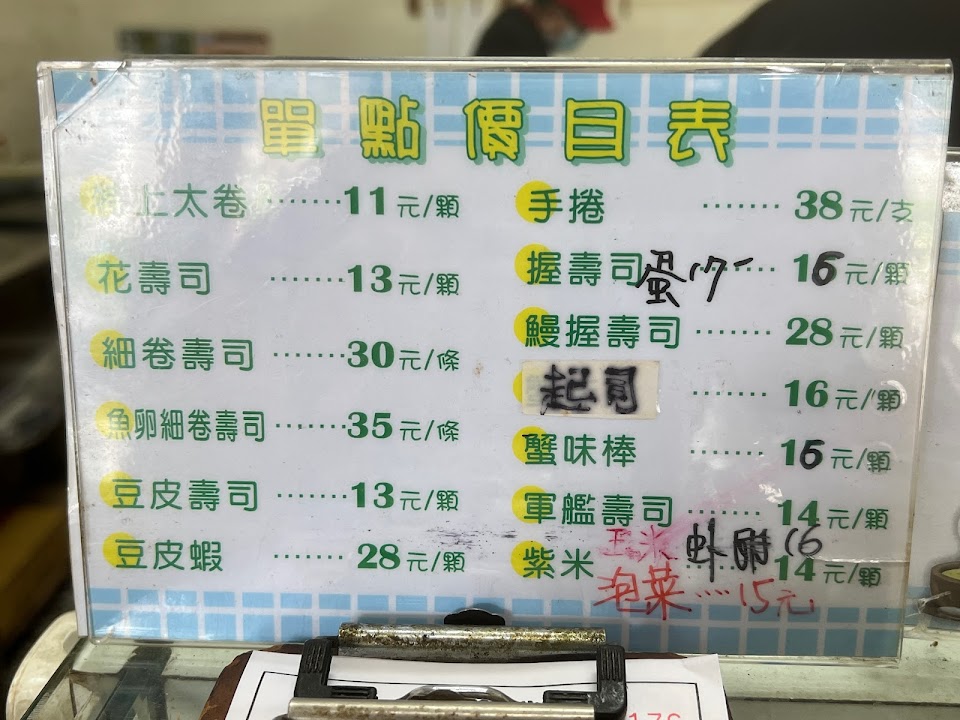 單點價目表
上太卷 ······· 11元/顆
花壽司 ······· 13元/顆
細卷壽司 ······· 30元/條
魚卵細卷壽司 ······· 35元/條
豆皮壽司 ······· 13元/顆
豆皮蝦 ······· 28元/顆
手捲 ······· 38元/支
握壽司 ······· 16元/顆
鰻握壽司 ······· 28元/顆
起司 ······· 16元/顆
蟹味棒 ······· 16元/顆
軍艦壽司 ······· 14元/顆
玉米 16
紫米 14元/顆
泡菜 ···· 15元
176